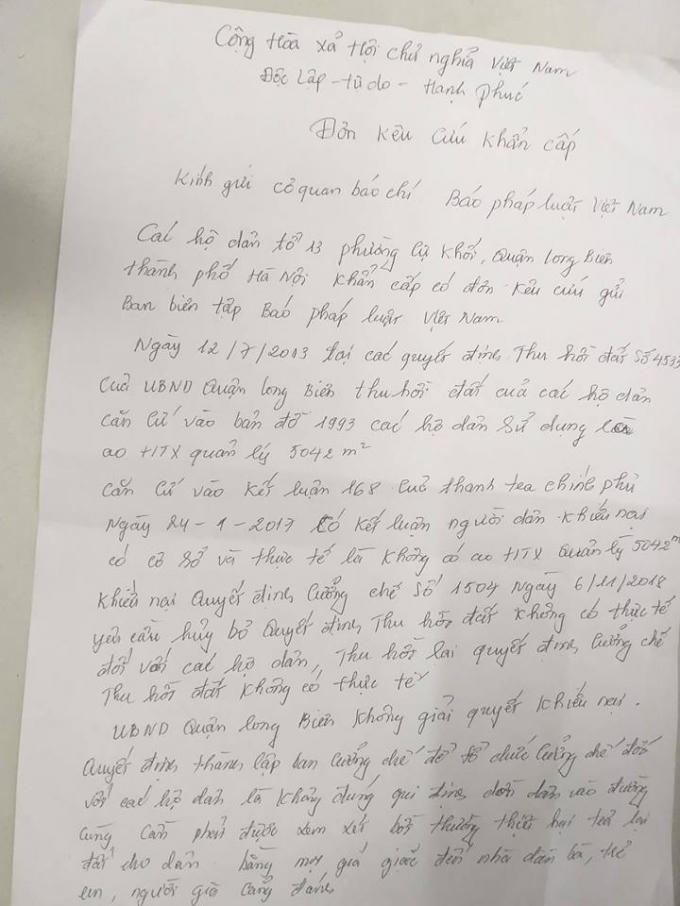 Cộng Hòa xả Hội chủ nghĩa Việt Nam
Độc Lập - tự do - Hạnh phúc
Đơn kêu cứu khẩn cấp
Kính gửi cơ quan báo chí Báo pháp luật Việt Nam
Các hộ dân tổ 13 phường cự khối, Quận long Biên
thành phố Hà Nội khẩn cấp có đơn kêu cứu gửi
Ban biên tập Báo pháp luật Việt Nam
Ngày 12/7/2013 tại các quyết định Thu hồi đất số 4533
Của UBND Quận long Biên thu hồi đất của các hộ dân
căn cứ vào bản đồ 1993 các hộ dân sử dụng là
ao HTX quản lý 5042 m²
căn cứ vào kết luận 168 của thanh tra chính phủ
Ngày 24-1-2017 có kết luận người dân khiếu nại
có cơ sở và thực tế là không có ao HTX quản lý 5042 m
khiếu nại Quyết định cưỡng chế số 1504 Ngày 6/11/2018
yêu cầu hủy bỏ Quyết định Thu hồi đất không có thực tế
đối với các hộ dân, Thu hồi lại quyết định cưỡng chế
Thu hồi đất không có thực tế
UBND Quận long Biên không giải quyết khiếu nại.
Quyết định thành lập ban cưỡng chế để tổ chức cưỡng chế đối
với các hộ dân là không đúng qui định dồn dân vào đường
cùng cần phải được xem xét bồi thường thiệt hại trả lại
đất cho dân bằng mọi giá đến nhà đàn bà, trẻ
em, người già